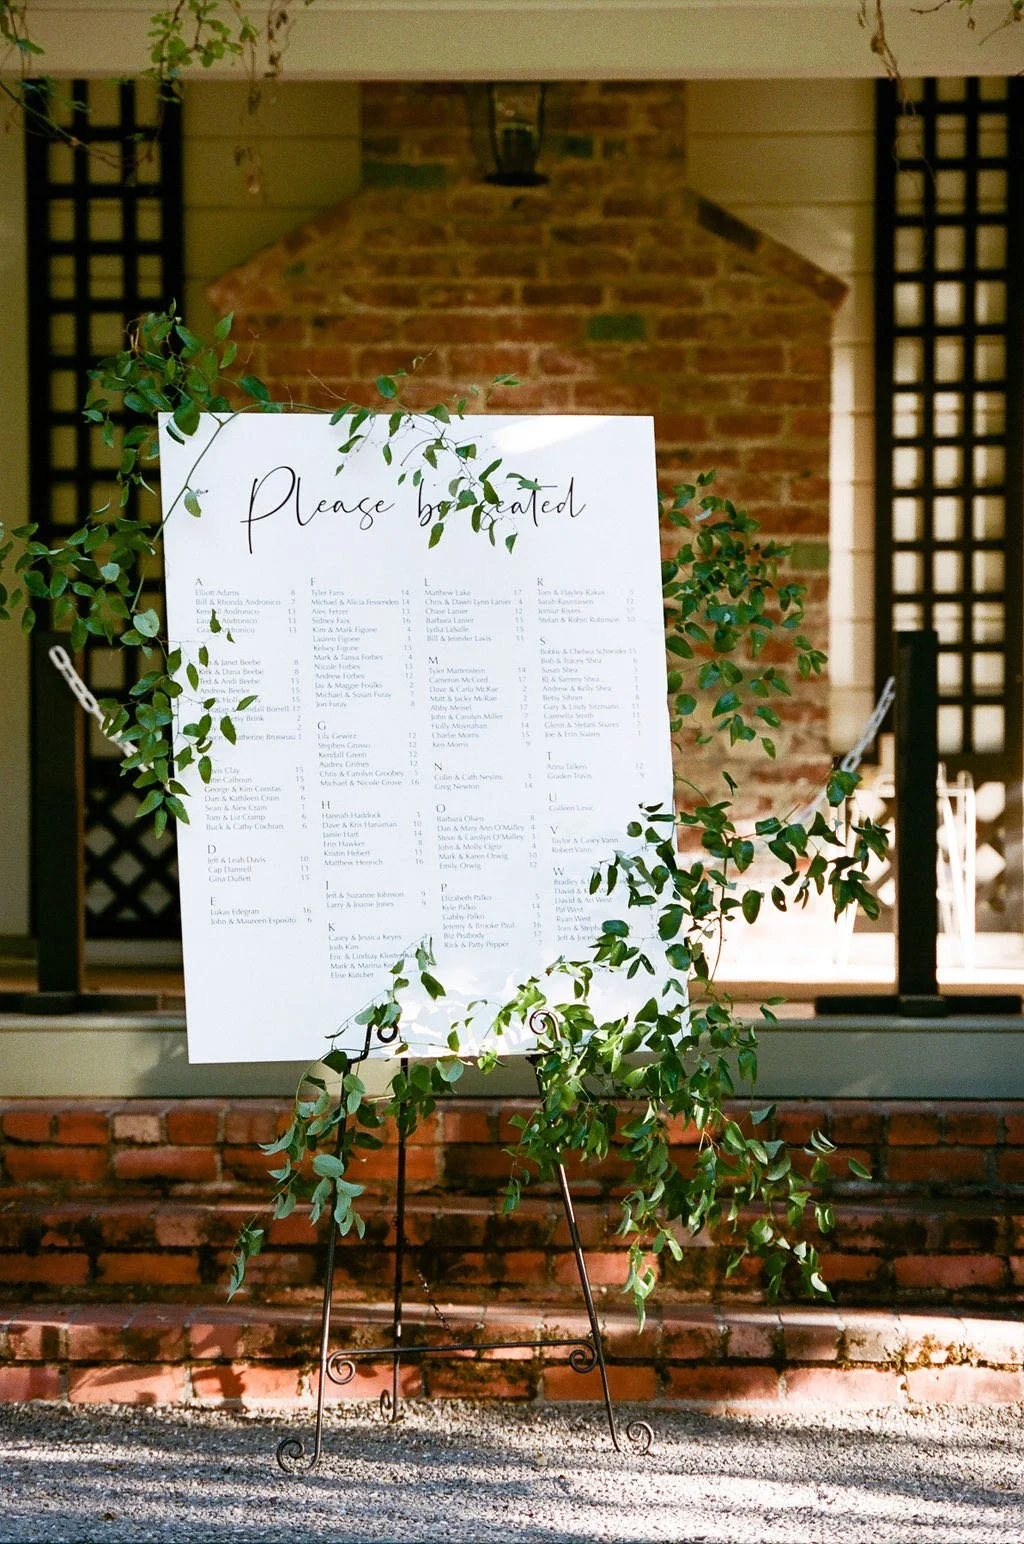 Please be seated
A
Elliott Adams 6
Bill & Rhonda Andronico 7
Andronico 13
Andronico 13
Andronico 13
& Janet Beebe 8
Kirk & Dana Beebe 8
Ted and Andi Beebe 13
Andrew Beeler 15
Borrell 17
Brink 2
Catherine Brosseau 1
Clay 15
Calhoun 15
George & Kim Constas 9
Dan & Kathleen Crain 6
Sean & Alex Crain 1
Tom & Liz Cramp 6
Buck & Cathy Cochran 6
D
Jeff & Leah Davis 10
Cap Damrell 13
Gina Duffett 15
E
Lukas Edegran 16
John & Maureen Esposito 6
F
Tyler Faris 14
Michael & Alicia Fessenden 14
Alec Fetzer 13
Sidney Faix 16
Kim & Mark Figone 4
Lauren Figone 1
Kelsey Figone 13
Mark & Tanya Forbes 4
Nicole Forbes 13
Andrew Forbes 12
Jay & Maggie Foulks 2
Michael & Susan Furay 7
Jon Furay 8
G
Lila Gewirz 12
Stephen Grosso 12
Kendall Green 12
Audrey Grimes 12
Chris & Carolyn Groobey 5
Michael & Nicole Grove 16
H
Hannah Haddock 1
Dave & Kris Hanaman 10
Jamie Hart 14
Erin Hawker 8
Kristin Hebert 11
Matthew Henrich 16
J
Jeff & Suzanne Johnson 9
Larry & Joanie Jones 9
K
Casey & Jessica Keyes
Josh Kan
Eric & Lindsay
Mark & Marina
Elise Kutcher
L
Matthew Lake 17
Chris & Dawn Lynn Lanier 4
Chase Lanier 12
Barbara Lanier 15
Lydia LaSalle 15
Bill & Jennifer Lavis 11
M
Tyler Martenstein 14
Cameron McCord 17
Dave & Carla McRae 2
Matt & Jacky McRae 2
Abby Meisel 17
John & Carolyn Miller 7
Holly Moynahan 14
Charlie Morris 15
Ken Morris 9
N
Colin & Cath Nevins 1
Greg Newton 14
O
Barbara Olsen 8
Dan & Mary Ann O'Malley 4
Steve & Carolyn O'Malley 3
John & Molly Ogro 4
Mark & Karen Orwig 10
Emily Orwig 12
P
Elizabeth Palko 5
Kyle Palko 14
Gabby Palko 5
Jeremy & Brooke Paul 16
Biz Peabody 17
Rick & Patty Pepper 7
R
Tom & Hayley Rakus 5
Sarah Rasmussen 12
Rivers
Stefan & Robin Robinson 10
S
Bobby & Chelsea Schneider 15
Bob & Tracey Shea 6
Susan Shea 3
RJ & Sammy Shea 1
Andrew & Kelly Shea 1
Betsy
Gary & Lindy Sitzmann 11
Carmella Smith 11
Glenn & Stefani Soares 2
Joe & Erin Soares 1
T
Anna Talken 12
Graden Travis 9
U
Colleen
V
Taylor & Casey Vann
Robert Vann
W
Bradley
David &
David & Ari West
Pat West
Ryan West
Tom &
Jeff &